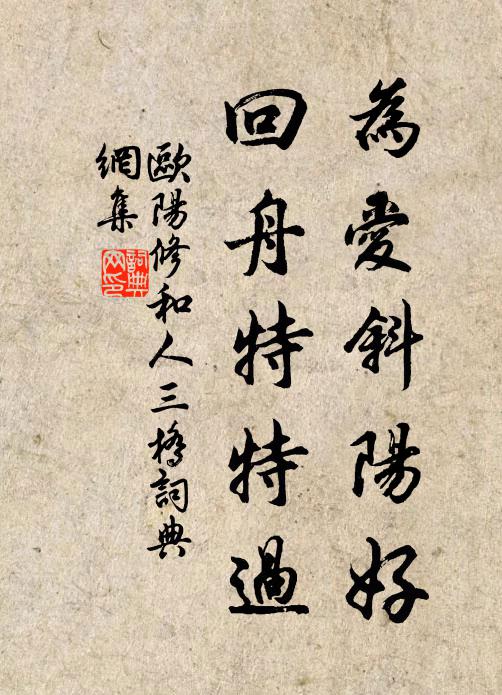 為愛斜陽好
回舟特特過
歐陽修和人三橋詞典
網集
詞典
网印